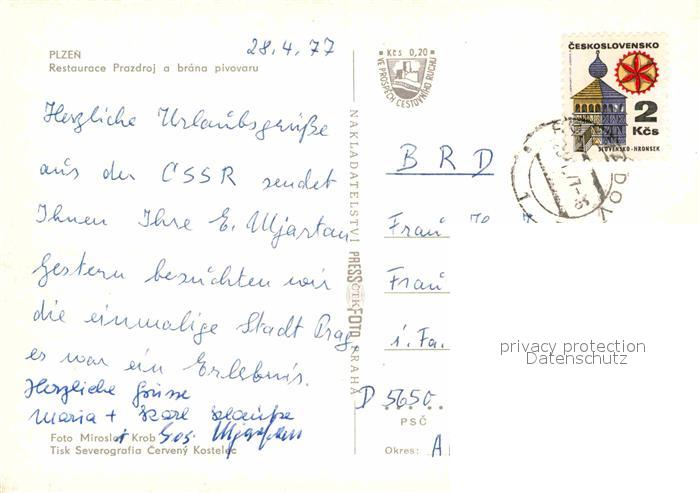 PLZEŇ
28.4.77
Restaurace Prazdroj a brána pivovaru
Herzliche Urlaubsgrüße
aus der ČSSR sendet
Ihnen Ihre E. Mjartan
Gestern besuchten wir
die einmalige Stadt Prag,
es war ein Erlebnis.
Herzliche Grüsse
Maria + Karl
Foto Miroslav Krob
Tisk Severografia Červený Kostelec
NAKLADATELSTVÍ PRESSFOTO PRAHA
ČTK
Kčs 0,20
VE PROSPĚCH CESTOVNÍHO RUCHU
ČESKOSLOVENSKO
2
Kčs
SLOVENSKO-HRONSEK
BRD
Frau
Frau
i. Fa.
D 5650
PSČ
Okres: A
privacy protection
Datenschutz